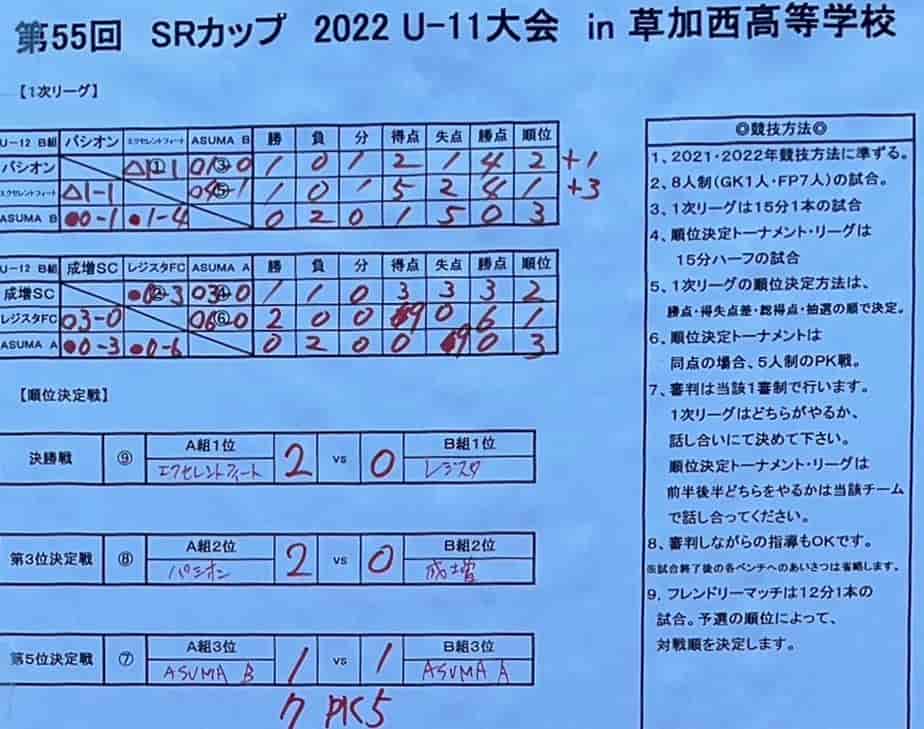 第55回 SRカップ 2022 U-11大会 in 草加西高等学校
【1次リーグ】
U-12 B組 パシオン エクセレントフィート ASUMA B 勝 負 分 得点 失点 勝点 順位
パシオン △1①1 01③0 1 0 1 2 1 4 2 +1
エクセレントフィート △1-1 04⑤1 1 0 1 5 2 4 1 +3
ASUMA B ●0-1 ●1-4 0 2 0 1 5 0 3
U-12 B組 成増SC レジスタFC ASUMA A 勝 負 分 得点 失点 勝点 順位
成増SC ●0②3 03④0 1 1 0 3 3 3 2
レジスタFC 03-0 06⑥0 2 0 0 9 0 6 1
ASUMA A ●0-3 ●0-6 0 2 0 0 9 0 3
【順位決定戦】
決勝戦 ⑨ A組1位 2 vs 0 B組1位
エクセレントフィート レジスタ
第3位決定戦 ⑧ A組2位 2 vs 0 B組2位
パシオン 成増
第5位決定戦 ⑦ A組3位 1 vs 1 B組3位
ASUMA B ASUMA A
7 PK 5
◎競技方法◎
1、2021・2022年競技方法に準ずる。
2、8人制(GK1人・FP7人)の試合。
3、1次リーグは15分1本の試合
4、順位決定トーナメント・リーグは
15分ハーフの試合
5、1次リーグの順位決定方法は、
勝点・得失点差・総得点・抽選の順で決定。
6、順位決定トーナメントは
同点の場合、5人制のPK戦。
7、審判は当該1審制で行います。
1次リーグはどちらがやるか、
話し合いにて決めて下さい。
順位決定トーナメント・リーグは
前半後半どちらをやるかは当該チーム
で話し合ってください。
8、審判しながらの指導もOKです。
※試合終了後の各ベンチへのあいさつは省略します。
9、フレンドリーマッチは12分1本の
試合。予選の順位によって、
対戦順を決定します。